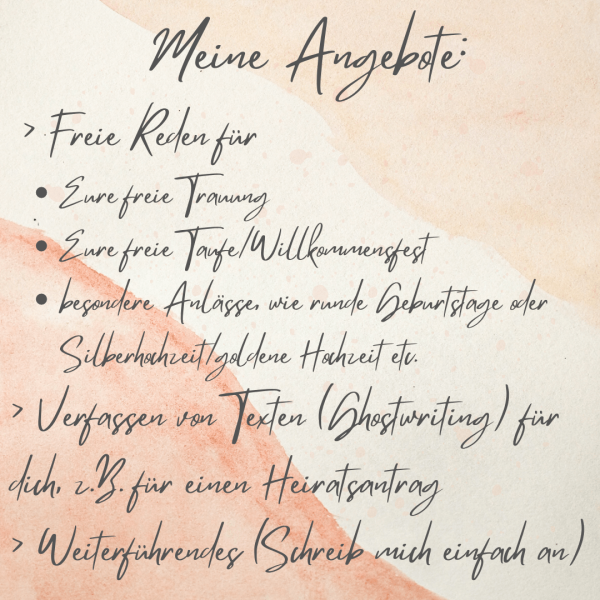 Meine Angebote:
> Freie Reden für
• Eure freie Trauung
• Eure freie Taufe/Willkommensfest
• besondere Anlässe, wie runde Geburtstage oder
Silberhochzeit/goldene Hochzeit etc.
> Verfassen von Texten (Ghostwriting) für
dich, z.B. für einen Heiratsantrag
> Weiterführendes (Schreib mich einfach an)